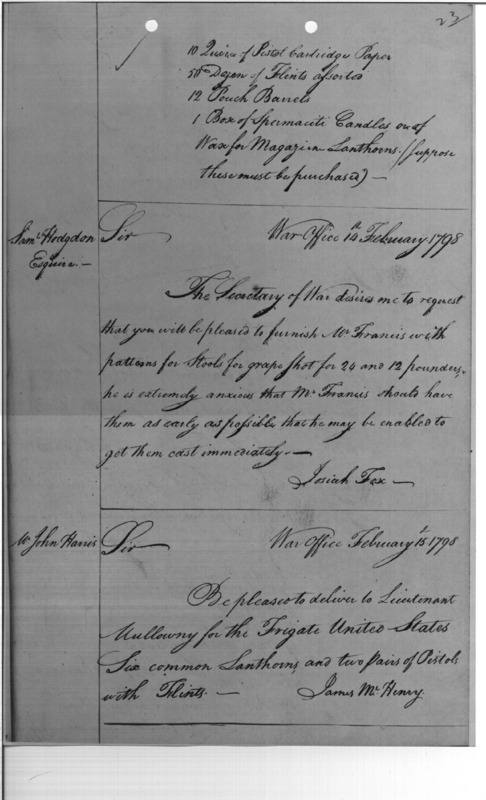 23
10 Quires of Pistol Cartridge Paper
50 Dozen of Flints assorted
12 Pouch Barrels
1 Box of Spermaciti Candles or of
Wax for Magazin Lanthorns. (Suppose
these must be purchased) —
Saml Hodgdon
Esquire. —
Sir
War Office 14th February 1798
The Secretary of War desires me to request
that you will be pleased to furnish Mr Francis with
patterns for Stools for grape Shot for 24 and 12 pounders,
he is extremely anxious that Mr Francis should have
them as early as possible, that he may be enabled to
get them cast immediately. —
Josiah Fox —
Mr John Harris
Sir
War Office February 15 1798
Be pleased to deliver to Lieutenant
Mullowny for the Frigate United States
Six common Lanthorns, and two pairs of Pistols
with Flints. —
James McHenry.